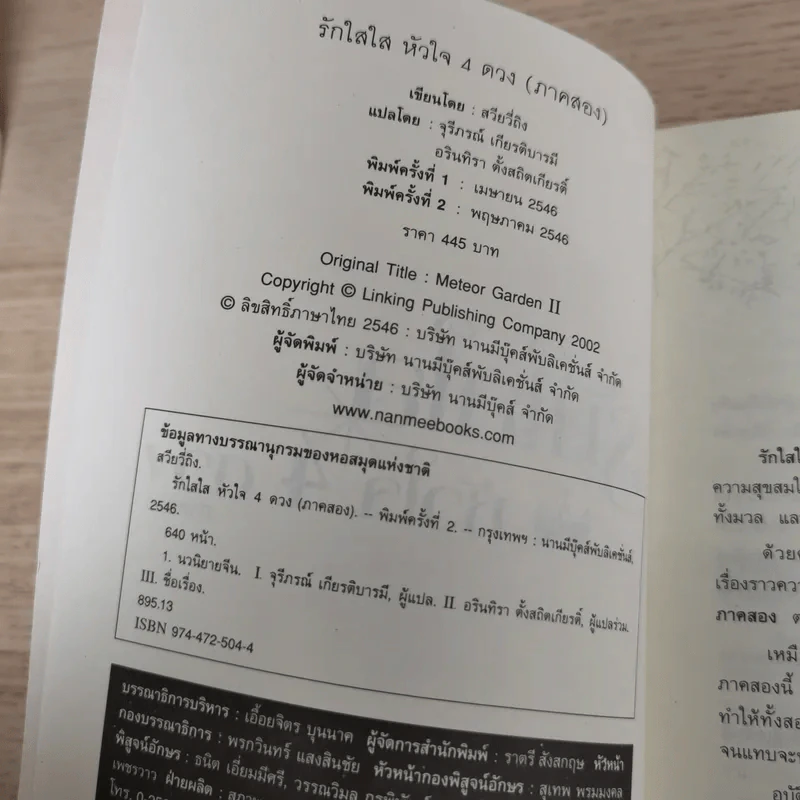 รักใสใส หัวใจ 4 ดวง (ภาคสอง)
เขียนโดย : สวียวี่ถิง
แปลโดย : จุรีภรณ์ เกียรติบารมี
อรินทิรา ตั้งสถิตเกียรติ์
พิมพ์ครั้งที่ 1 : เมษายน 2546
พิมพ์ครั้งที่ 2 : พฤษภาคม 2546
ราคา 445 บาท
Original Title : Meteor Garden II
Copyright © Linking Publishing Company 2002
© ลิขสิทธิ์ภาษาไทย 2546 : บริษัท นานมีบุ๊คส์พับลิเคชั่นส์ จำกัด
ผู้จัดพิมพ์ : บริษัท นานมีบุ๊คส์พับลิเคชั่นส์ จำกัด
ผู้จัดจำหน่าย : บริษัท นานมีบุ๊คส์ จำกัด
www.nanmeebooks.com
ข้อมูลทางบรรณานุกรมของหอสมุดแห่งชาติ
สวียวี่ถิง.
รักใสใส หัวใจ 4 ดวง (ภาคสอง). -- พิมพ์ครั้งที่ 2. -- กรุงเทพฯ : นานมีบุ๊คส์พับลิเคชั่นส์,
2546.
640 หน้า.
1. นวนิยายจีน. I. จุรีภรณ์ เกียรติบารมี, ผู้แปล. II. อรินทิรา ตั้งสถิตเกียรติ์, ผู้แปลร่วม.
III. ชื่อเรื่อง.
895.13
ISBN 974-472-504-4
บรรณาธิการบริหาร : เอื้อยจิตร บุนนาค ผู้จัดการสำนักพิมพ์ : ราตรี สังสกฤษ หัวหน้า
กองบรรณาธิการ : พรกวินทร์ แสงสินชัย หัวหน้ากองพิสูจน์อักษร : สุเทพ พรมมงคล
พิสูจน์อักษร : ธนิต เอี่ยมมีศรี, วรรณวิมล
เพชรวาว ฝ่ายผลิต :
โทร.
รักใสใ
ความสุขสมใ
ทั้งมวล แล
ด้วย
เรื่องราวควา
ภาคสอง
เหมื
ภาคสองนี้
ทำให้ทั้งสอ
จนแทบจะ